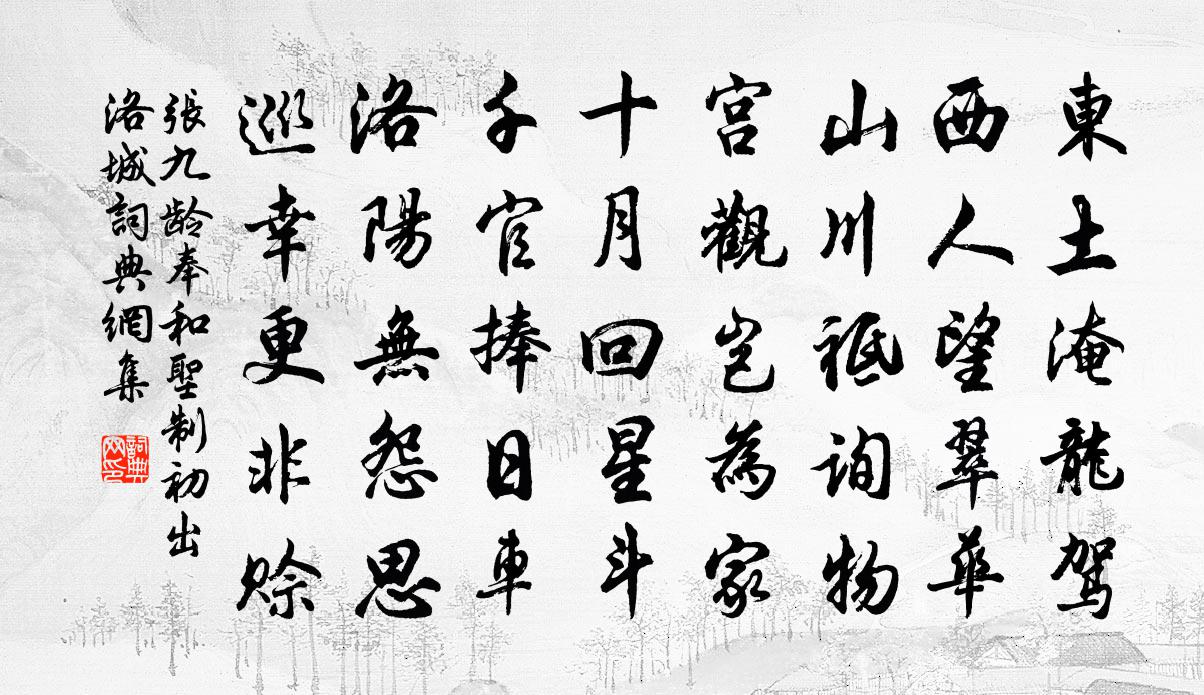 東土淹龍駕
西人望翠華
山川祗詢物
宮觀豈為家
十月回星斗
千官捧日車
洛陽無怨思
巡幸更非賒
張九龄奉和聖制初出
洛城詞典網集
詞典网印